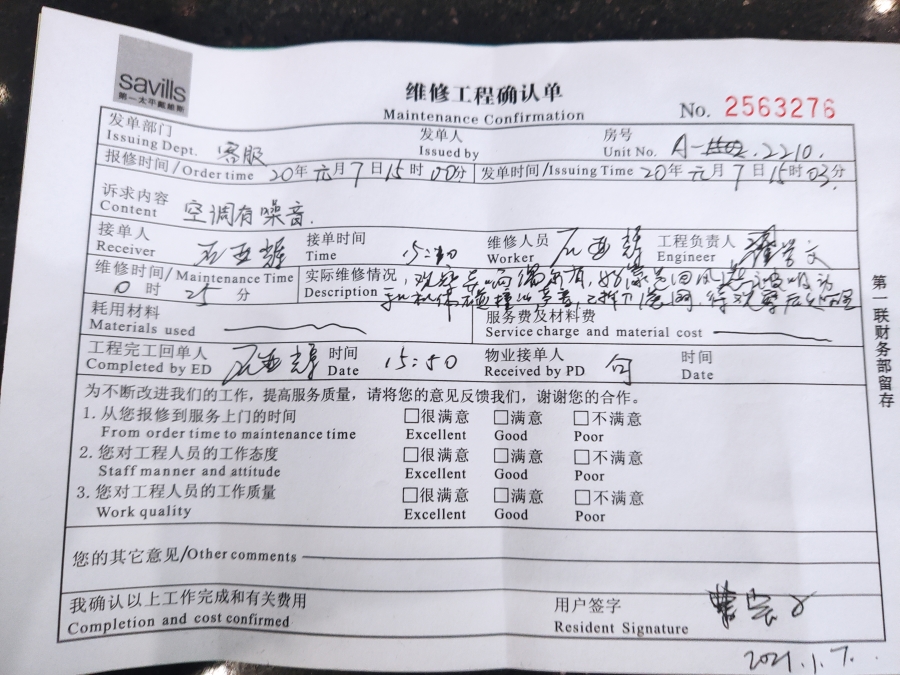 savills
第一太平戴维斯
维修工程确认单
Maintenance Confirmation
No. 2563276
发单部门 客服 发单人 房号
Issuing Dept. Issued by Unit No. A- 2210.
报修时间/Order time 20年元月7日15时00分 发单时间/Issuing Time 20年元月7日15时03分
诉求内容
Content 空调有噪音.
接单人 接单时间 维修人员 工程负责人
Receiver 石亚辉 Time 15: Worker 石亚辉 Engineer
维修时间/Maintenance Time 实际维修情况
0时25分 Description
耗用材料 服务费及材料费
Materials used Service charge and material cost
工程完工回单人 石亚辉 时间 15:50 物业接单人 何 时间
Completed by ED Date Received by PD Date
为不断改进我们的工作，提高服务质量，请将您的意见反馈我们，谢谢您的合作。
1. 从您报修到服务上门的时间 □很满意 □满意 □不满意
From order time to maintenance time Excellent Good Poor
2. 您对工程人员的工作态度 □很满意 □满意 □不满意
Staff manner and attitude Excellent Good Poor
3. 您对工程人员的工作质量 □很满意 □满意 □不满意
Work quality Excellent Good Poor
您的其它意见/Other comments
我确认以上工作完成和有关费用 用户签字
Completion and cost confirmed Resident Signature
2021.1.7.
第一联财务部留存